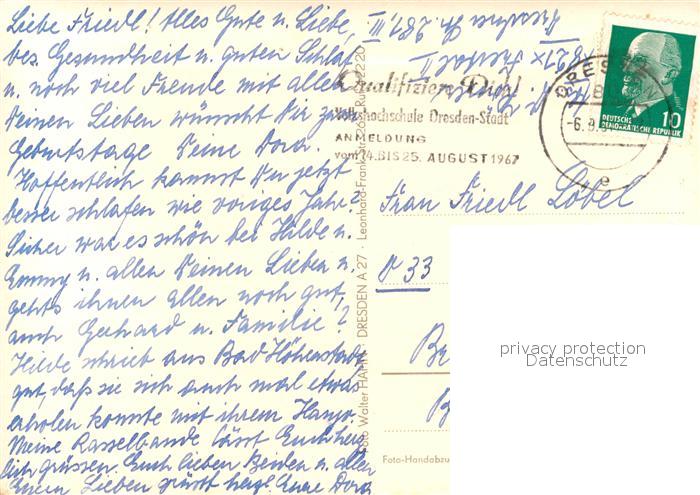 Liebe Friedl! Alles Gute u. Liebe,
bes. Gesundheit u. guten Schlaf
u. noch viel Freude mit allen
Deinen Lieben wünscht Dir zum
Geburtstage Deine Dora.
Hoffentlich kannst Du jetzt
besser schlafen wie voriges Jahr?
Sicher war es schön bei Hilde u.
Emmy u. allen Deinen Lieben u.
gehts ihnen allen noch gut,
auch Gerhard u. Familie?
Hilde schrieb aus Bad
gut, daß sie sich auch mal etwas
erholen konnte mit ihrem Hanjo.
Meine Rasselbande lässt Euch herz-
lich grüssen. Euch lieben Beiden u. allen
Euern Lieben grüsst herzl. Eure Dora
Foto Walter HAHN · DRESDEN A 27 · Leonhard-Frank-Str.
Absender Dresden
Qualifiziere Dich!
Volkshochschule Dresden-Stadt
ANMELDUNG
vom 14. BIS 25. AUGUST 1967
DRESDEN
e
DEUTSCHE
DEMOKRATISCHE REPUBLIK
10
Frau Friedl Löbel
Foto-Handabzu
privacy protection
Datenschutz